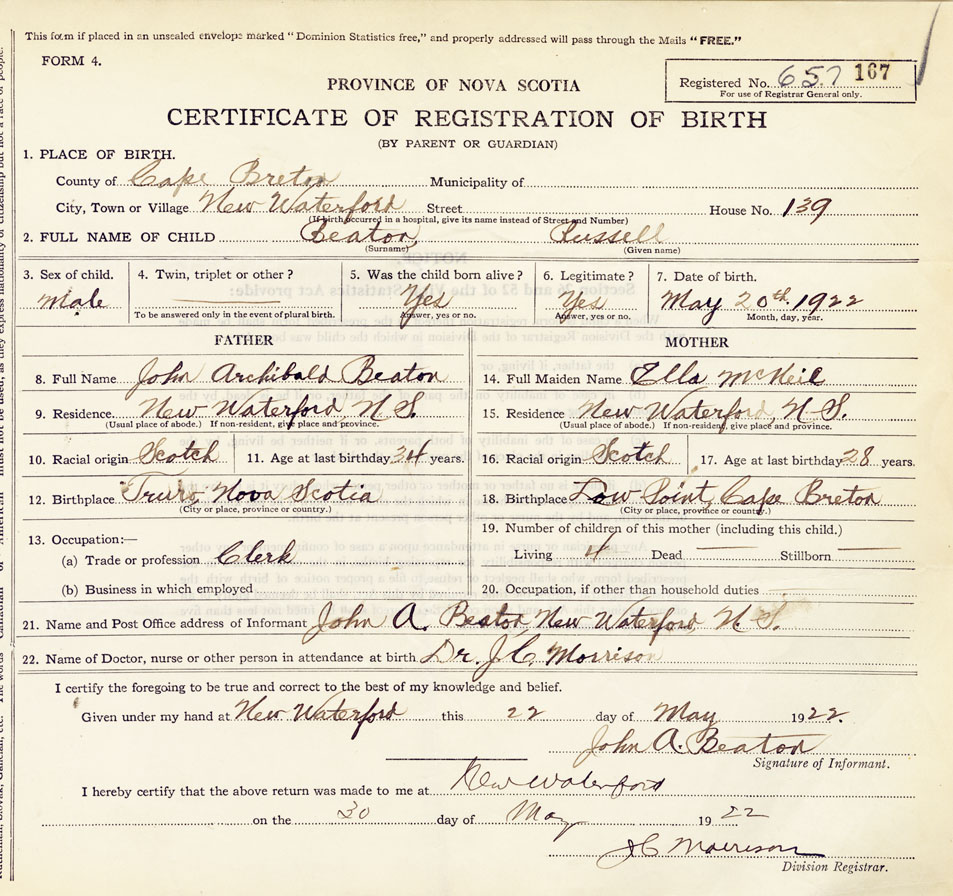 This form if placed in an unsealed envelope marked "Dominion Statistics free," and properly addressed will pass through the Mails "FREE."
FORM 4.
Registered No. 657 167
For use of Registrar General only.
PROVINCE OF NOVA SCOTIA
CERTIFICATE OF REGISTRATION OF BIRTH
(BY PARENT OR GUARDIAN)
1. PLACE OF BIRTH.
County of Cape Breton Municipality of
City, Town or Village New Waterford Street House No. 139
(If birth occurred in a hospital, give its name instead of Street and Number)
2. FULL NAME OF CHILD Beaton, Russell
(Surname) (Given name)
3. Sex of child. 4. Twin, triplet or other? 5. Was the child born alive? 6. Legitimate? 7. Date of birth.
Male Yes Yes May 20th 1922
To be answered only in the event of plural birth. Answer, yes or no. Answer, yes or no. Month, day, year.
FATHER MOTHER
8. Full Name John Archibald Beaton 14. Full Maiden Name Ella McNeil
9. Residence New Waterford, N.S. 15. Residence New Waterford, N.S.
(Usual place of abode.) If non-resident, give place and province. (Usual place of abode.) If non-resident, give place and province.
10. Racial origin Scotch 11. Age at last birthday 34 years. 16. Racial origin Scotch 17. Age at last birthday 28 years.
12. Birthplace Truro, Nova Scotia 18. Birthplace Low Point, Cape Breton
(City or place, province or country.) (City or place, province or country.)
13. Occupation:— 19. Number of children of this mother (including this child.)
(a) Trade or profession Clerk Living 4 Dead Stillborn
(b) Business in which employed 20. Occupation, if other than household duties
21. Name and Post Office address of Informant John A. Beaton New Waterford, N.S.
22. Name of Doctor, nurse or other person in attendance at birth Dr. J.C. Morrison
I certify the foregoing to be true and correct to the best of my knowledge and belief.
Given under my hand at New Waterford this 22 day of May 1922.
John A. Beaton
Signature of Informant.
I hereby certify that the above return was made to me at New Waterford
on the 30 day of May 1922
J C Morrison
Division Registrar.